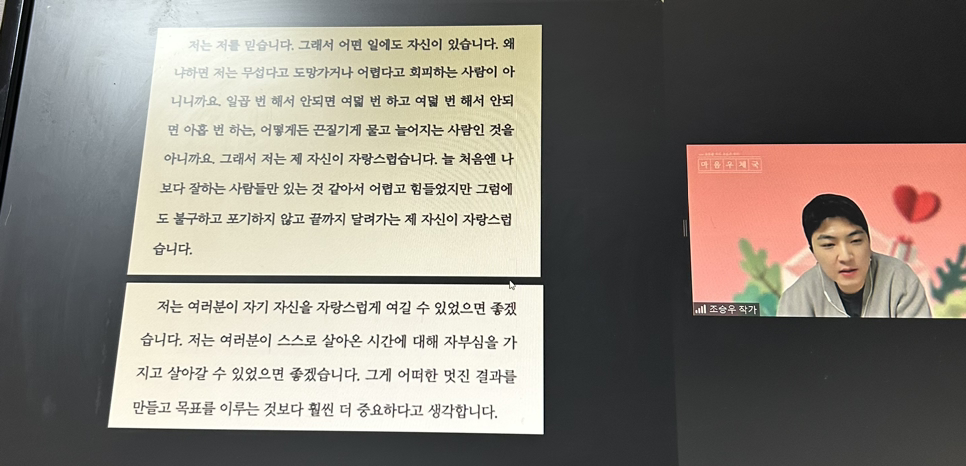 저는 저를 믿습니다. 그래서 어떤 일에도 자신이 있습니다. 왜
냐하면 저는 무섭다고 도망가거나 어렵다고 회피하는 사람이 아
니니까요. 일곱 번 해서 안되면 여덟 번 하고 여덟 번 해서 안되
면 아홉 번 하는, 어떻게든 끈질기게 물고 늘어지는 사람인 것을
아니까요. 그래서 저는 제 자신이 자랑스럽습니다. 늘 처음엔 나
보다 잘하는 사람들만 있는 것 같아서 어렵고 힘들었지만 그럼에
도 불구하고 포기하지 않고 끝까지 달려가는 제 자신이 자랑스럽
습니다.
저는 여러분이 자기 자신을 자랑스럽게 여길 수 있었으면 좋겠
습니다. 저는 여러분이 스스로 살아온 시간에 대해 자부심을 가
지고 살아갈 수 있었으면 좋겠습니다. 그게 어떠한 멋진 결과를
만들고 목표를 이루는 것보다 훨씬 더 중요하다고 생각합니다.
마음우체국
조승우 작가